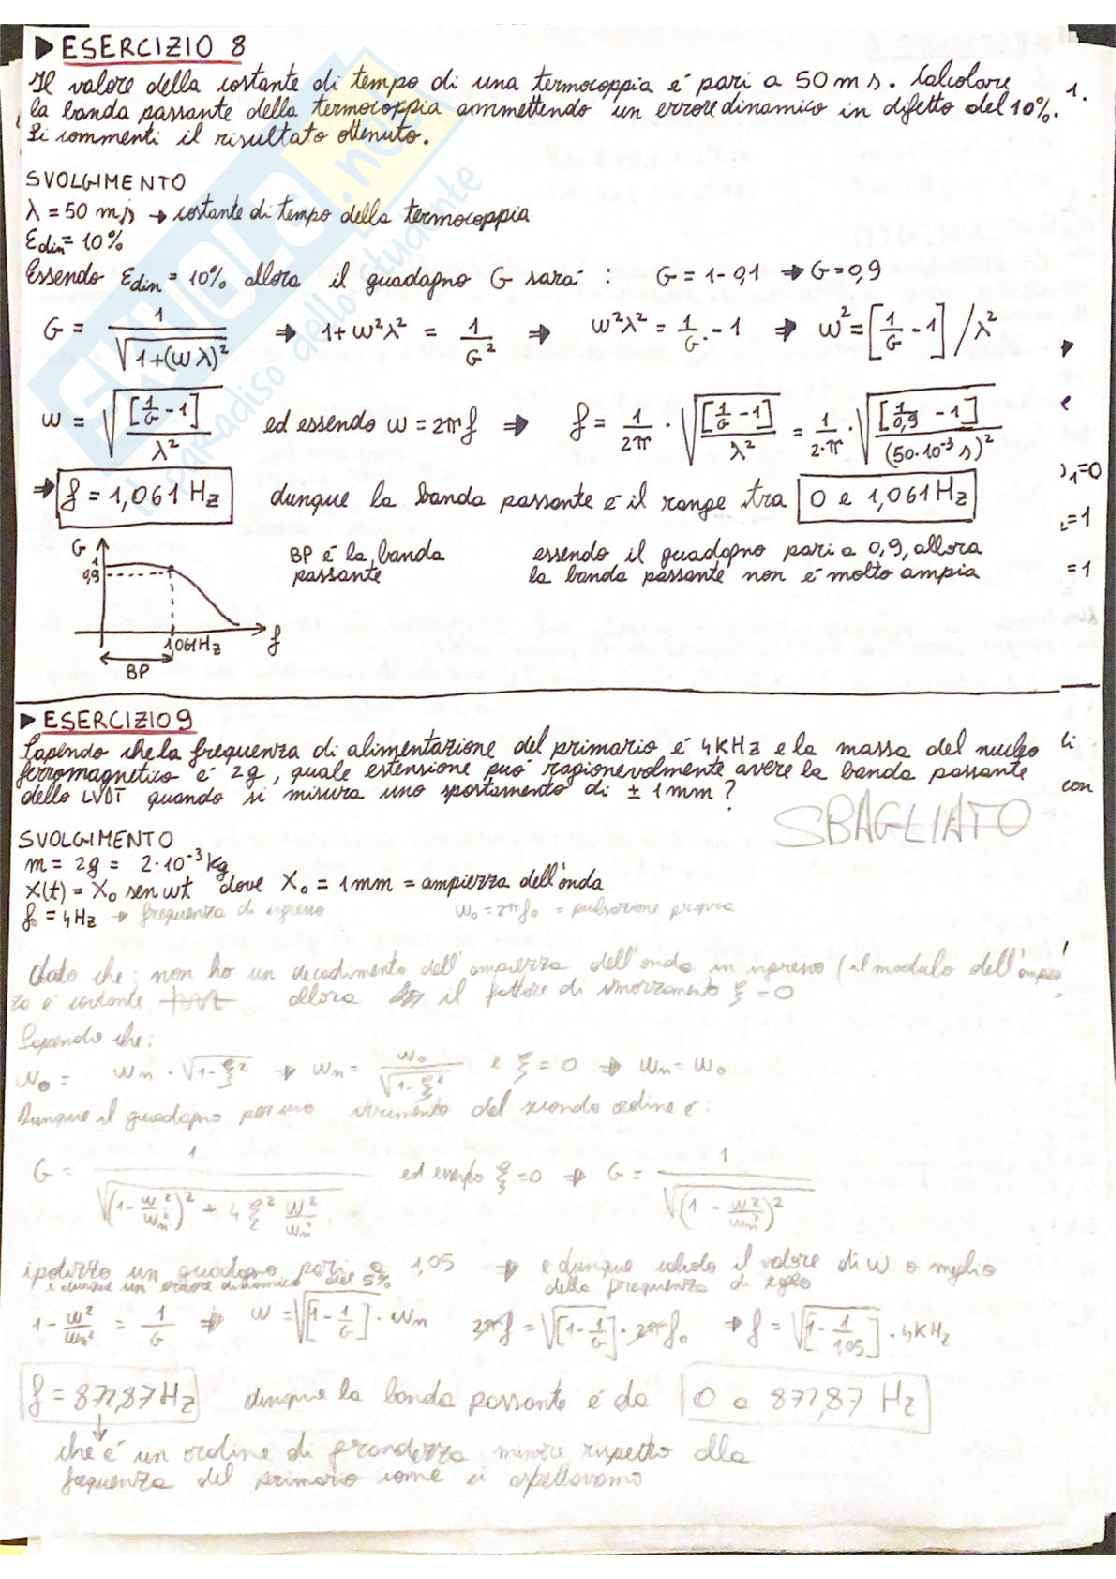 ▶ ESERCIZIO 8
Il valore della costante di tempo di una termocoppia é pari a 50 ms. Calcolare
la banda passante della termocoppia ammettendo un errore dinamico in difetto del 10%.
Si commenti il risultato ottenuto.
1.
SVOLGIMENTO
λ = 50 ms → costante di tempo della termocoppia
Edin = 10%
Essendo Edin = 10% allora il guadagno G sará : G = 1-0,1 ⇒ G=0,9
G = 1/√(1+(ωλ)²) ⇒ 1+ω²λ² = 1/G² ⇒ ω²λ² = 1/G - 1 ⇒ ω² = [1/G - 1] / λ²
ω = √([1/G - 1]/λ²) ed essendo ω = 2πf ⇒ f = 1/2π · √([1/G - 1]/λ²) = 1/2·π · √([1/0,9 - 1]/(50·10⁻³ s)²)
⇒ f = 1,061 Hz dunque la banda passante é il range tra 0 e 1,061 Hz
=0
=1
=1
G
1
0,9
1,061Hz
f
BP
BP é la banda
passante
essendo il guadagno pari a 0,9, allora
la banda passante non é molto ampia
▶ ESERCIZIO 9
Sapendo che la frequenza di alimentazione del primario é 4KHz e la massa del nucleo
ferromagnetico é 2g, quale estensione puó ragionevolmente avere la banda passante
dello LVDT quando si misura uno spostamento di ± 1mm?
con
SBAGLIATO
SVOLGIMENTO
m = 2g = 2·10⁻³ kg
X(t) = X₀ sen ωt dove X₀ = 1mm = ampiezza dell'onda
f₀ = 4Hz → frequenza di ingresso ω₀ = 2πf₀ = pulsazione propria
Dato che non ho un decadimento dell'ampiezza dell'onda in ingresso (il modulo dell'ampiez
za é costante allora il fattore di smorzamento ξ = 0
Sapendo che:
ω₀ = ωn · √(1-ξ²) ⇒ ωn = ω₀/√(1-ξ²) e ξ = 0 ⇒ ωn = ω₀
Dunque il guadagno per uno strumento del secondo ordine é:
G = 1/√((1-ω²/ωn²)² + 4ξ² ω²/ωn²) ed essendo ξ=0 ⇒ G = 1/√((1 - ω²/ωn²)²)
ipotizzo un guadagno pari a 1,05 ⇒ e dunque calcolo il valore di ω o meglio
e dunque un errore dinamico del 5% della frequenza di taglio
1 - ω²/ωn² = 1/G ⇒ ω = √[1-1/G] · ωn 2πf = √[1-1/G] · 2πf₀ ⇒ f = √[1-1/1,05] · 4KHz
f = 872,87 Hz dunque la banda passante é da 0 a 872,87 Hz
che é un ordine di grandezza minore rispetto alla
frequenza del primario come ci aspettavamo